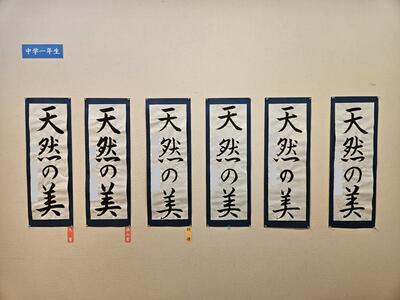 中学一年生
天然の美
天然の美
天然の美
天然の美
天然の美
天然の美